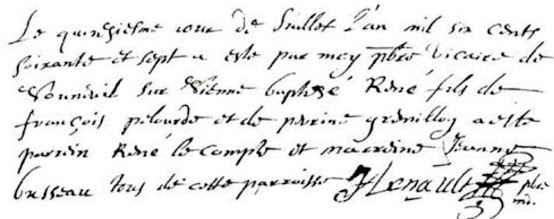 Le quinziesme jour de Juillet L'an mil six cents
soixante et sept a esté par moy pbre vicaire de
Vouneuil sur Vienne baptizé René fils de
françois pelourde et de perine gremillon a esté
parrein René le compte et marreine Jeanne
busseau tous de cette parroisse JHenault pbre